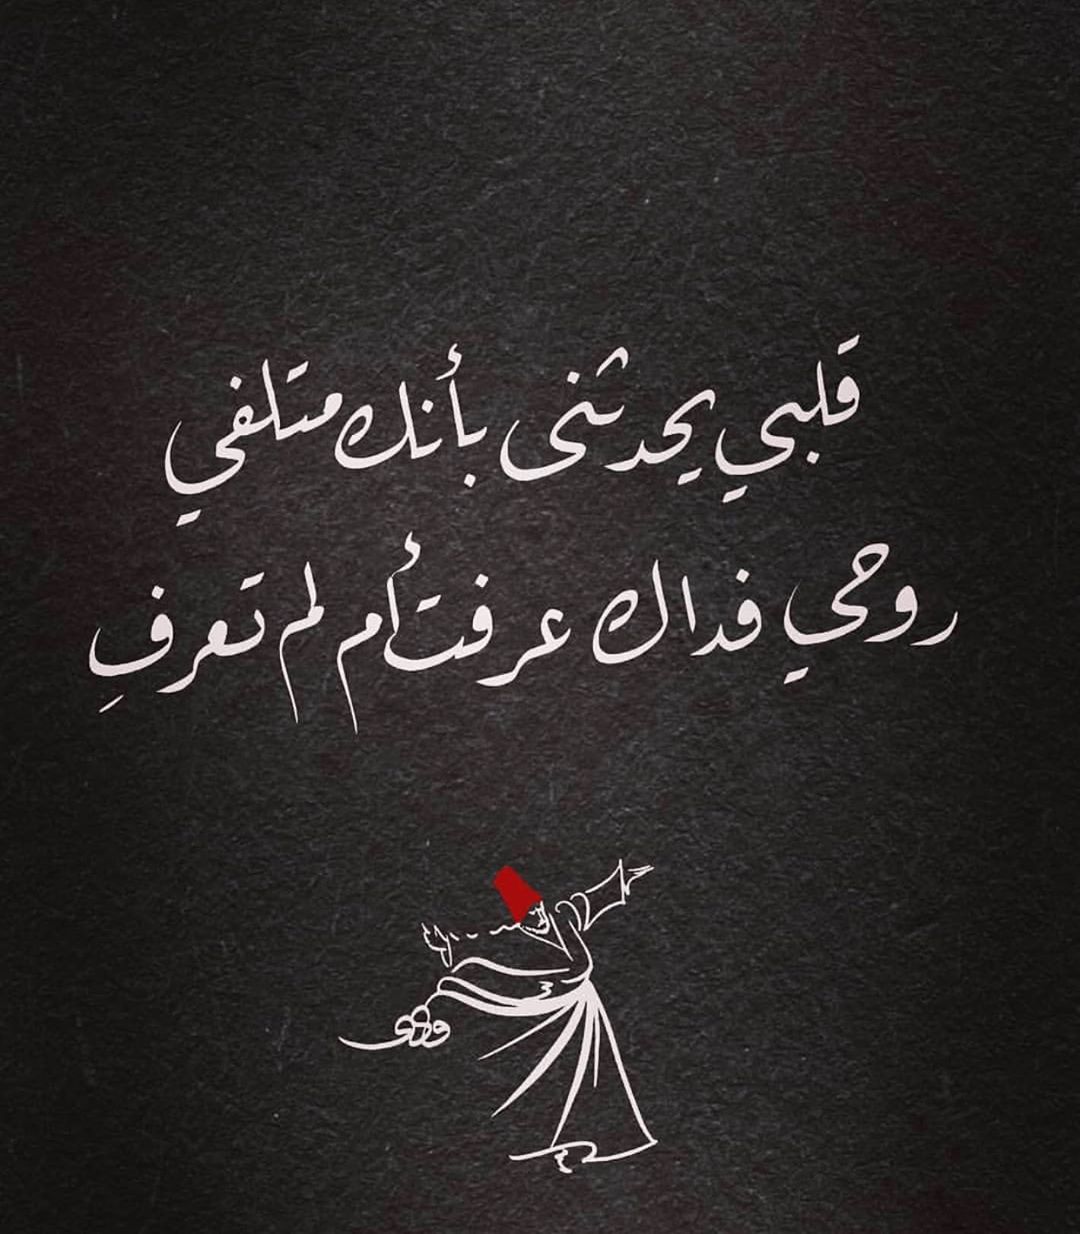 قلبي يحدثنى بأنك متلفي
روحي فداك عرفت أم لم تعرفِ